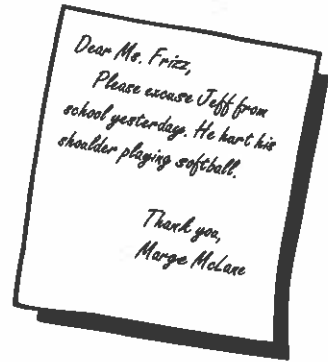 Dear Ms. Frizz,
Please excuse Jeff from
school yesterday. He hurt his
shoulder playing softball.
Thank you,
Marge McLane